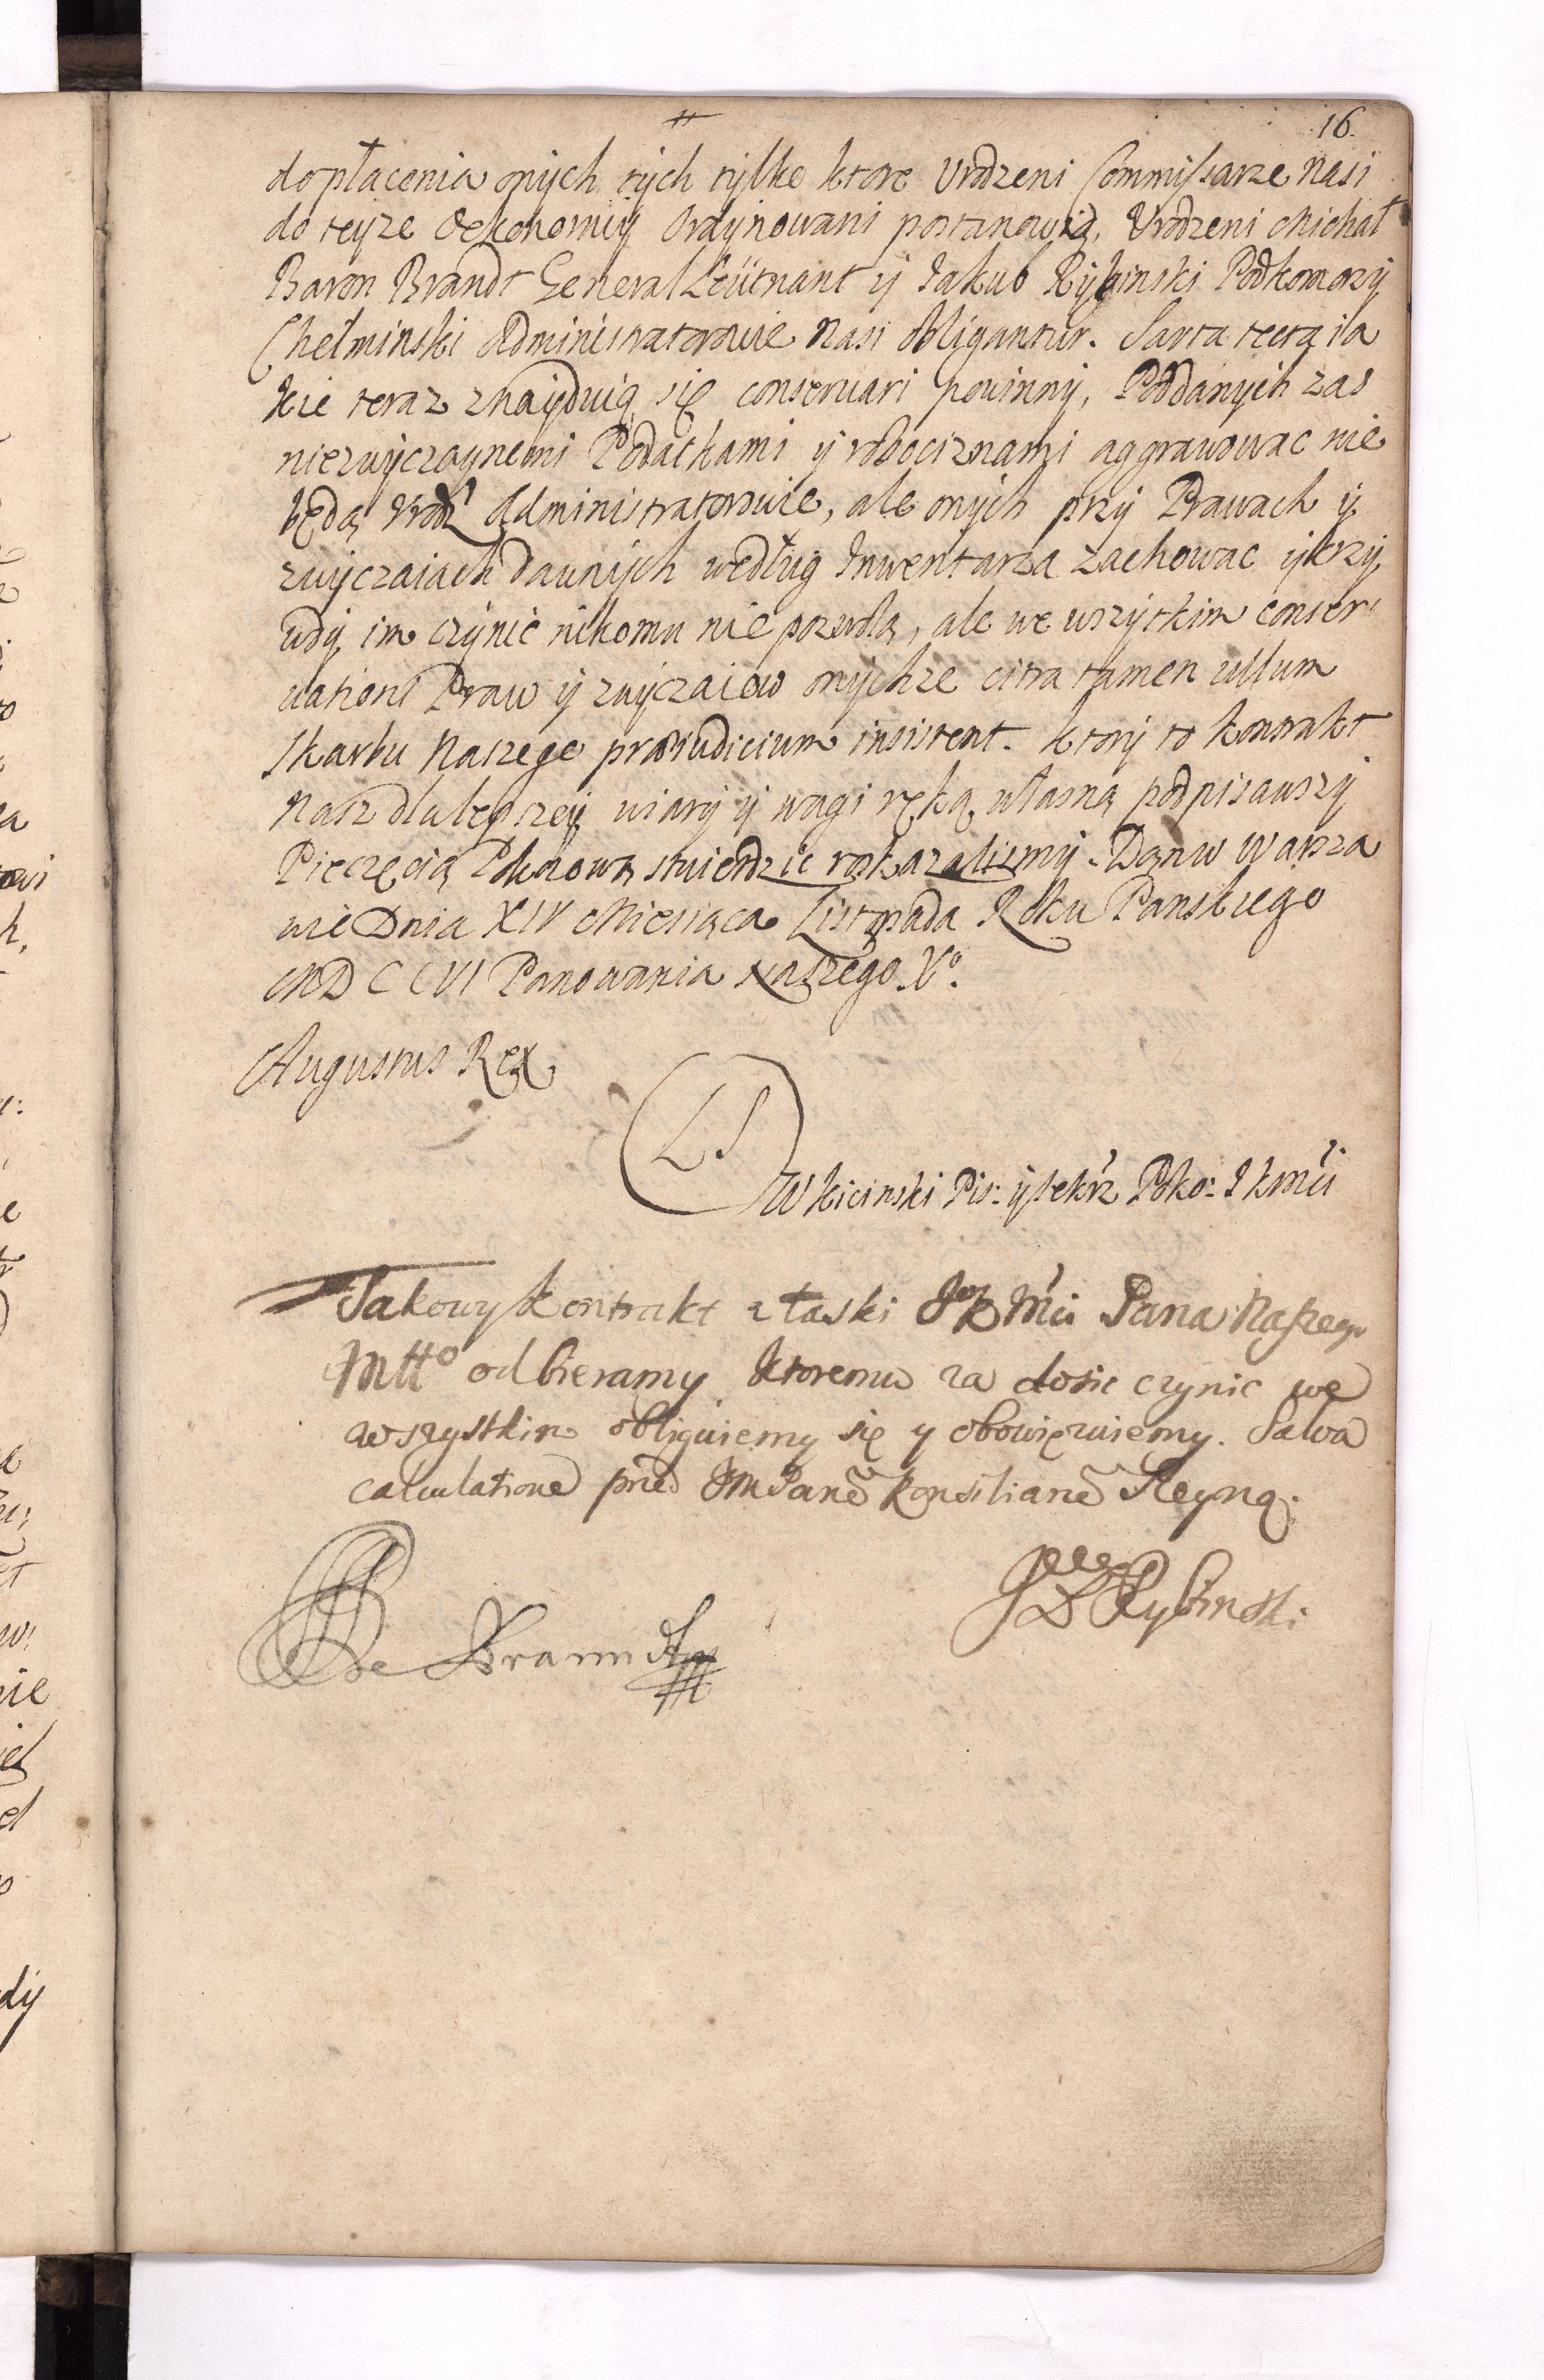 16.
do płacenia onych tych tylko ktore Urodzeni Commissarze nasi
do teyze Oekonomiy Ordynowani postanowią, Urodzeni Michał
Baron Brandt General Leütnant y Jakub Rybinski Podkomorzy
Chełminski Administratorowie nasi obligantur. Sarta tecta ia
kie teraz znayduią się conservari powinny, Poddanych zas
niezwyczaynemi Podatkami y robociznami aggrawowac nie
będą Urodź Administratorowie, ale onych przy Prawach y
zwyczaiach dawnych według Inwentarza zachowac y krzy
wdy im czynić nikomu nie pozwolą, ale we wszytkim conser
vationi Praw y zwyczaiow onychze citra tamen ullum
Skarbu Naszego præiudicium insistent. ktory to kontrakt
Nasz dla lepszey wiary y wagi ręką własną podpisawszy
Pieczęcią Pokoiową stwierdzic roskazalismy. Dan w Warsza
wie Dnia XIV Miesiąca Listopada Roku Panskiego
MDCCVI Panowania Naszego X°.
Augustus Rex
LS
W Kicinski Pis: y sekrz Poko: JKMci
Takowy Kontrakt z łaski JeoKMci Pana Naszego
Mtto odbieramy ktoremu za dosic czynic we
wszystkim obliguiemy się y obowięzuiemy. Salva
calculatione przed JM Panē Konsiliarē Steyną.
JD Rybinski
de Brannt